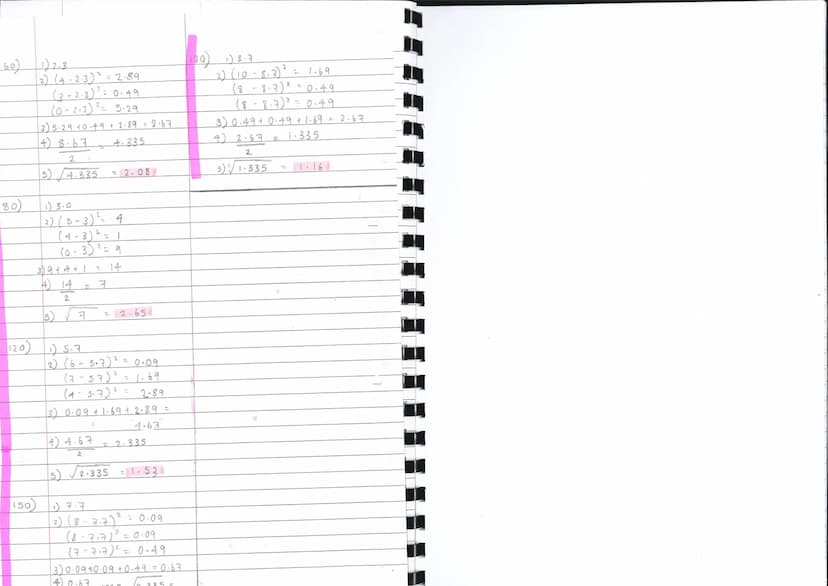 60) 1) 2.3
2) (4 - 2.3)² = 2.89
(3 - 2.3)² = 0.49
(0 - 2.3)² = 5.29
3) 5.29 + 0.49 + 2.89 = 8.67
4) 8.67 / 2 = 4.335
5) √4.335 = 2.08
80) 1) 3.0
2) (5 - 3)² = 4
(4 - 3)² = 1
(0 - 3)² = 9
3) 9 + 4 + 1 = 14
4) 14 / 2 = 7
5) √7 = 2.65
120) 1) 5.7
2) (6 - 5.7)² = 0.09
(7 - 5.7)² = 1.69
(4 - 5.7)² = 2.89
3) 0.09 + 1.69 + 2.89 =
4.67
4) 4.67 / 2 = 2.335
5) √2.335 = 1.53
150) 1) 7.7
2) (8 - 7.7)² = 0.09
(8 - 7.7)² = 0.09
(7 - 7.7)² = 0.49
3) 0.09 + 0.09 + 0.49 = 0.67
4) 0.67
1) 8.7
2) (10 - 8.7)² = 1.69
(8 - 8.7)² = 0.49
(8 - 8.7)² = 0.49
3) 0.49 + 0.49 + 1.69 = 2.67
4) 2.67 / 2 = 1.335
5) √1.335 = 1.16